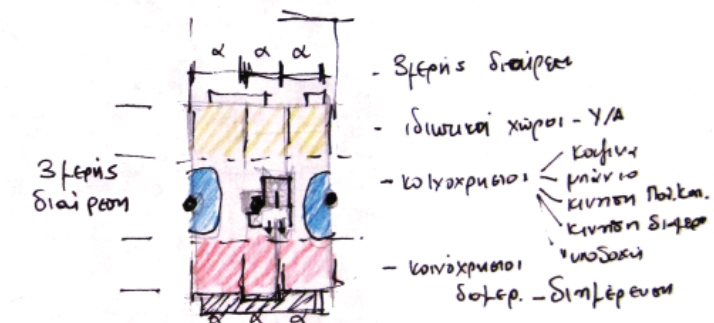 α α α
- 3μερής διαίρεση
- ιδιωτικοί χώροι - Υ/Δ
3μερής
διαίρεση
- κοινόχρηστοι
κουζίνα
μπάνιο
κίνηση πολ. κατ.
κίνηση διαμερ
υποδοχή
- κοινόχρηστοι
διαμερ. - διημέρευση
α α α